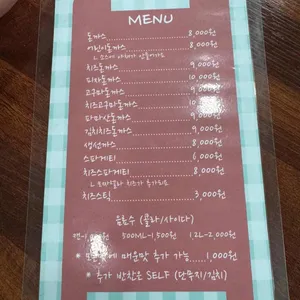 MENU
돈까스 8,000원
어린이돈까스 8,000원
치즈돈까스 9,000원
피자돈까스 10,000원
고구마돈까스 9,000원
치즈고구마돈까스 10,000원
파마산돈까스 9,000원
김치치즈돈까스 9,000원
생선까스 8,000원
스파게티 6,000원
치즈스파게티 8,000원
ㄴ 모짜렐라 치즈가 추가되요
치즈스틱 3,000원
음료수 (콜라/사이다)
캔 500ML-1,500원 1.2L-2,000원
* 매운맛 추가 가능 1,000원
* 추가 반찬은 SELF (단무지/김치)